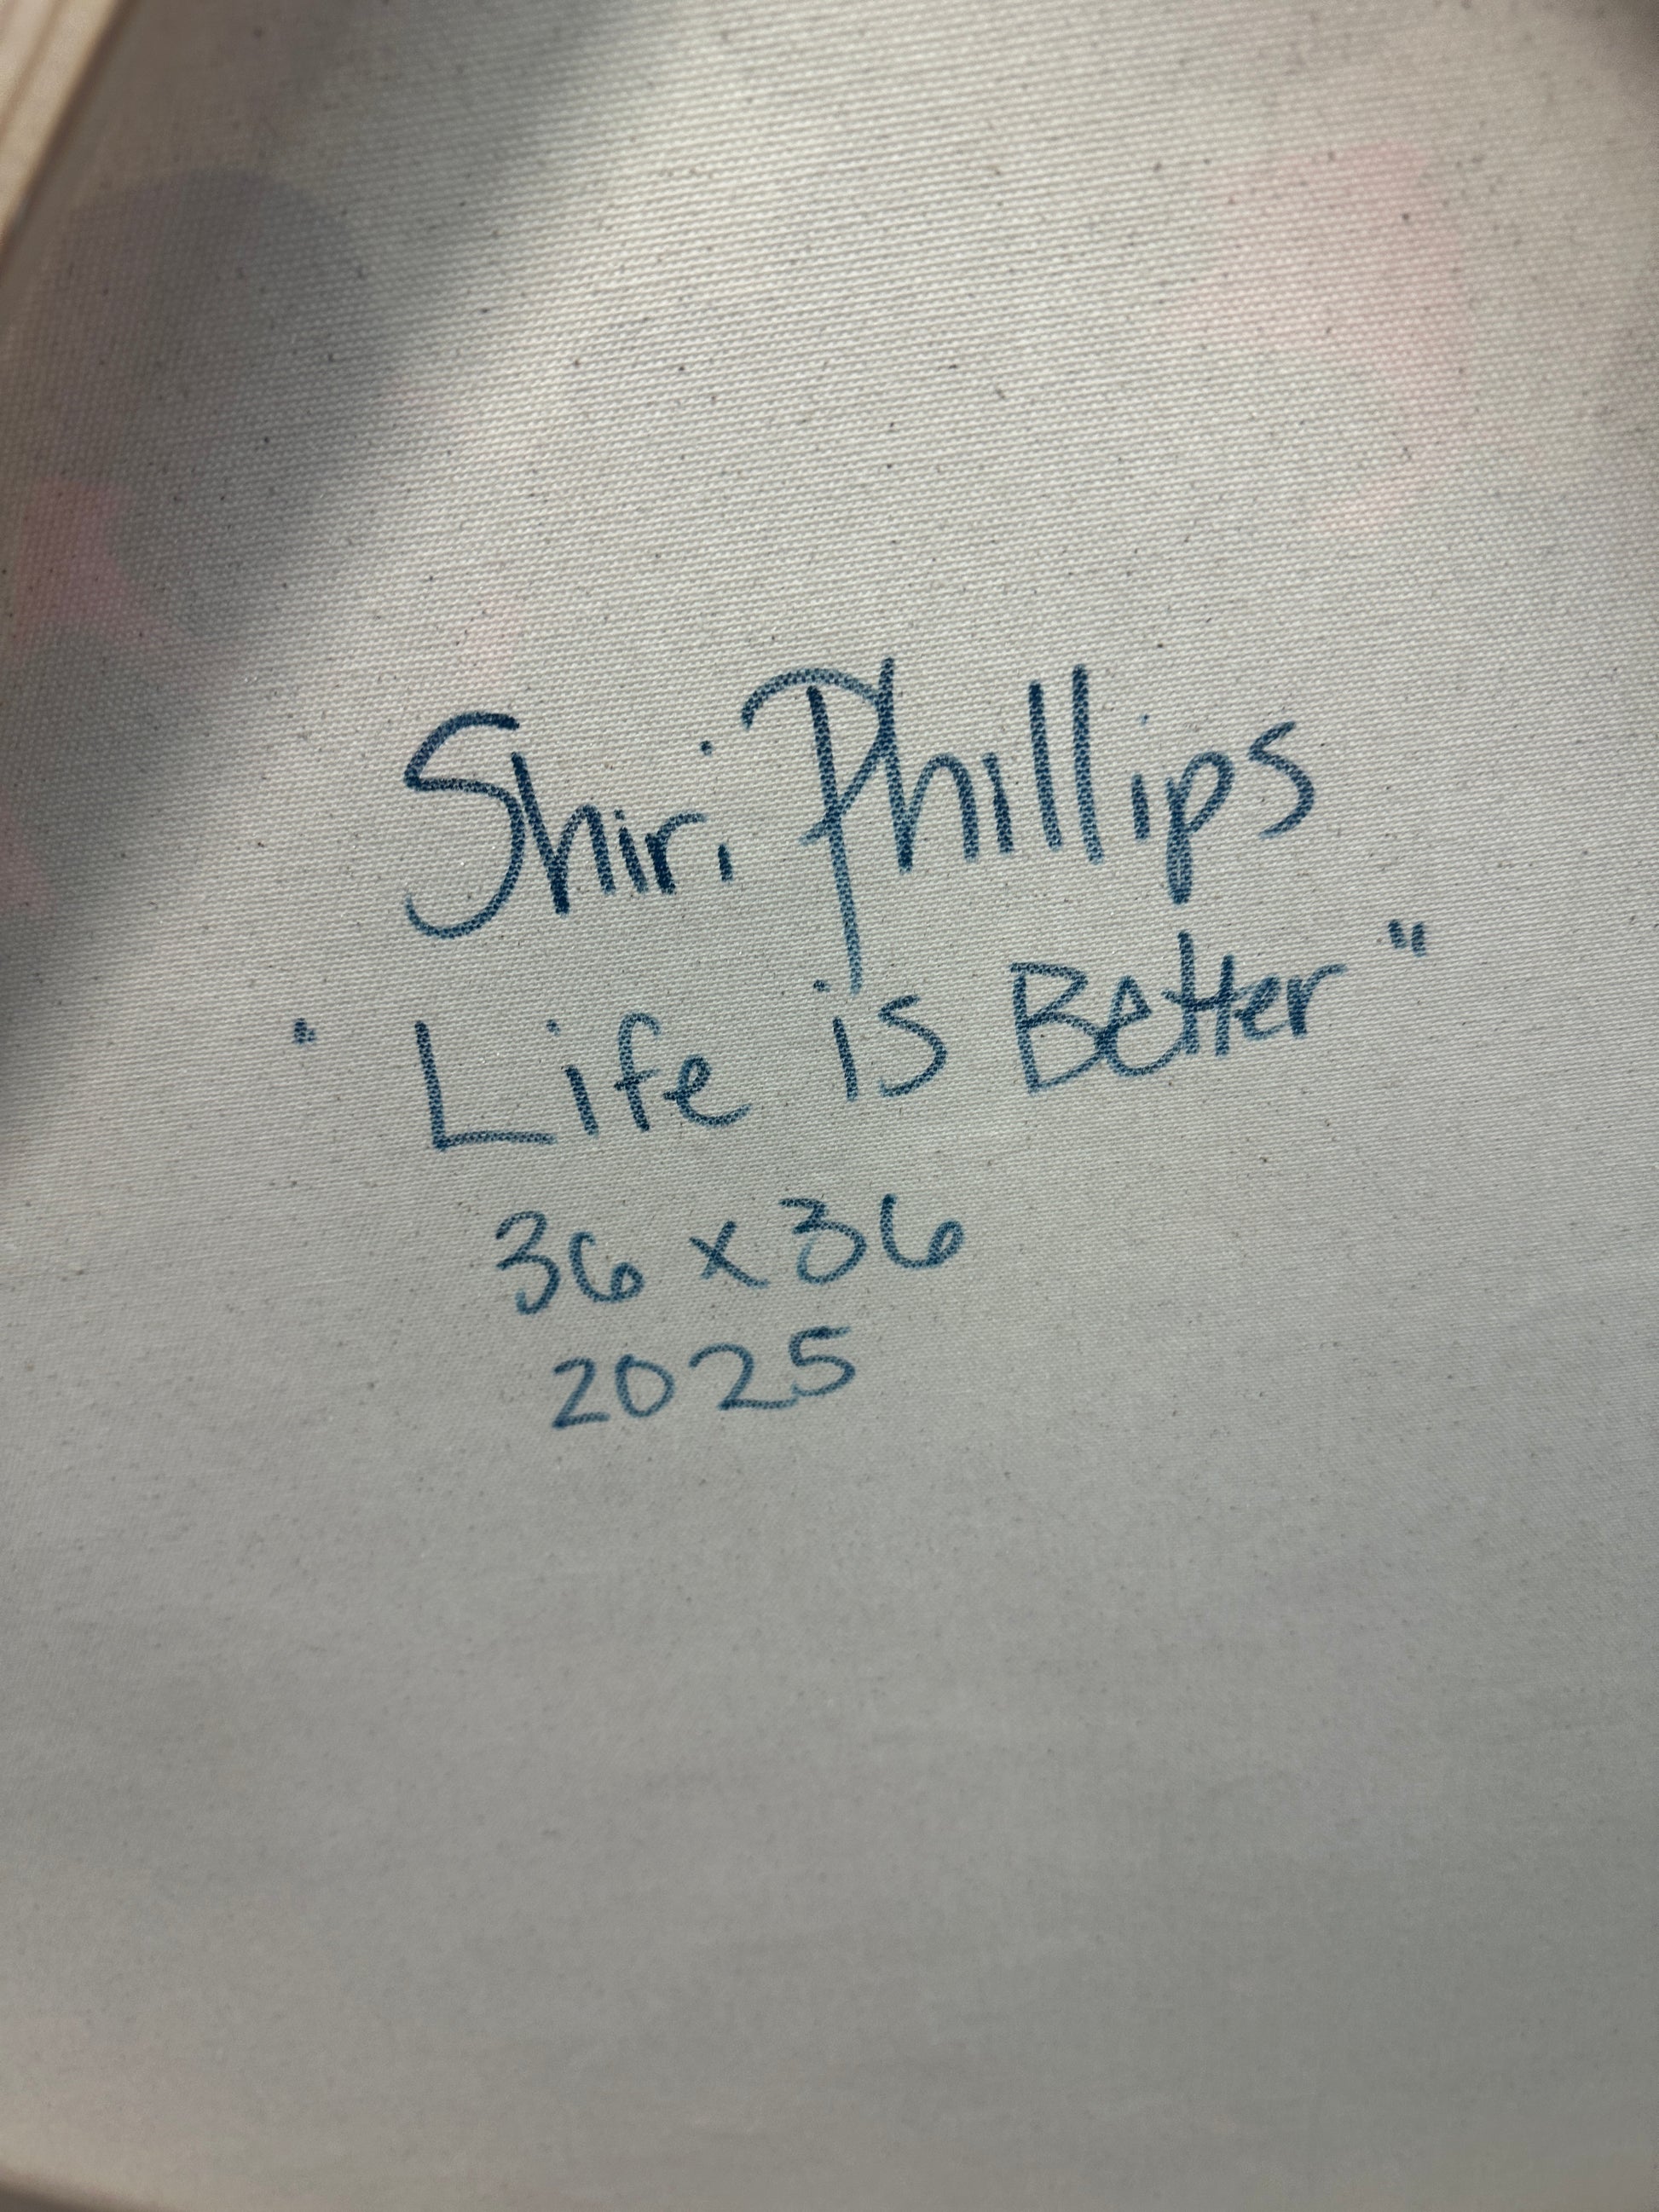 Shiri Phillips
"Life is Better"
36 x 36
2025